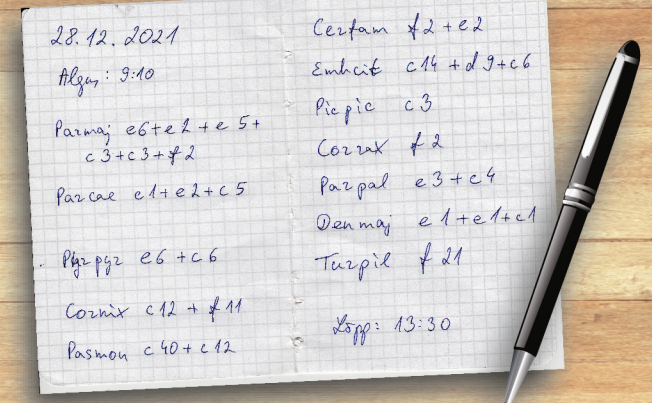 28.12.2021
Algus: 9:10
Parmaj e6+e2+e5+
c3+c3+f2
Parcae e1+e2+c5
Pyrpyr e6+c6
Cornix c12+f11
Pasmon c40+c12
Certam f2+e2
Embcit c14+d9+c6
Picpic c3
Corrax f2
Parpal e3+c4
Denmaj e1+e1+c1
Turpil f21
Lõpp: 13:30